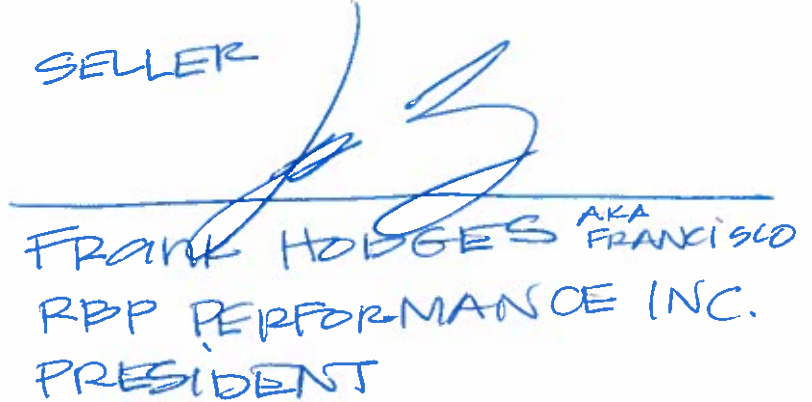 SELLER
FRANK HODGES AKA FRANCISCO
RBP PERFORMANCE INC.
PRESIDENT